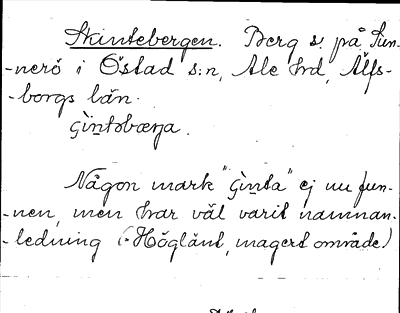 Skintebergen. Berg s. på Sun-
-nerö i Östad s:n, Ale hrd, Älfs-
-borgs län.
Någon mark "ġìnta" ej nu fun-
-nen, men har väl varit namnan-
-ledning (: Högländt, magert område)